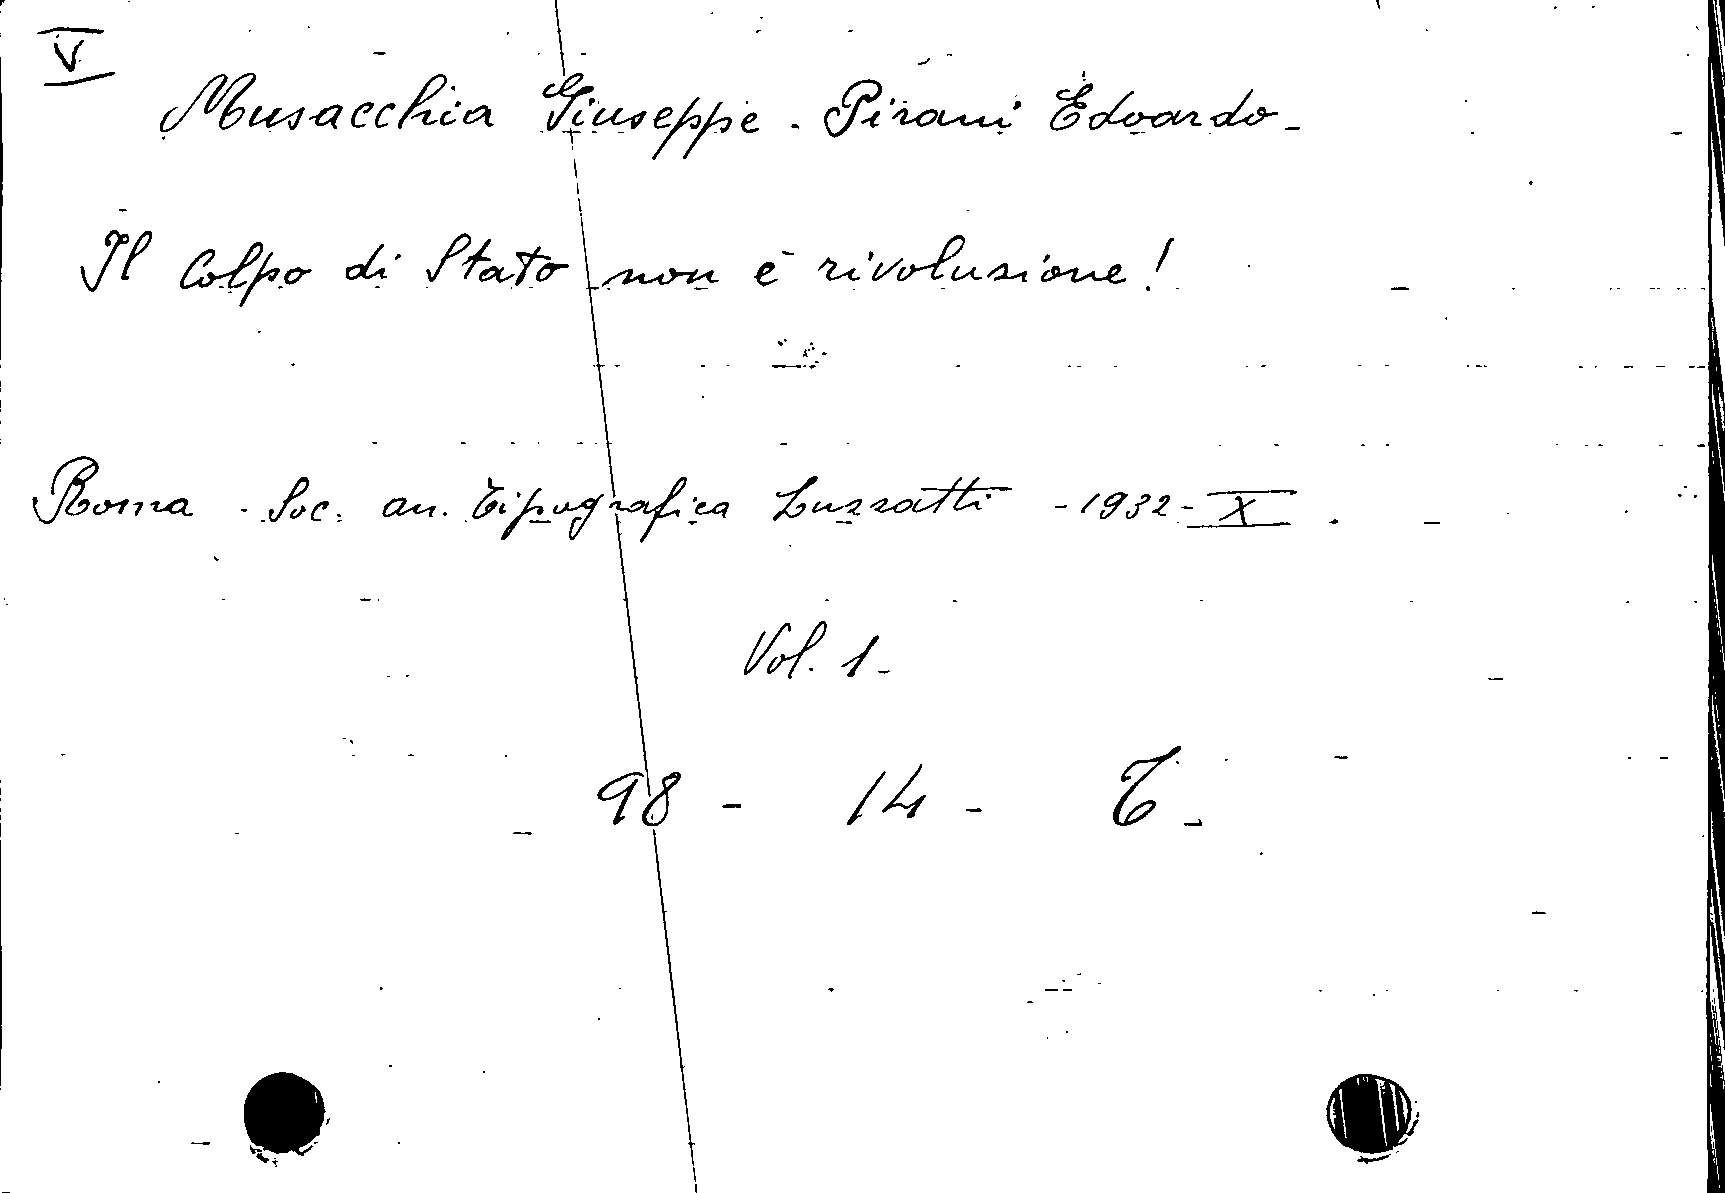 V
Musacchia Giuseppe - Pirani Edoardo -
Il Colpo di Stato non è rivoluzione!
Roma - Soc. an. Tipografica Luzzatti - 1932 - X.
Vol. 1 -
98 - 14 - T -